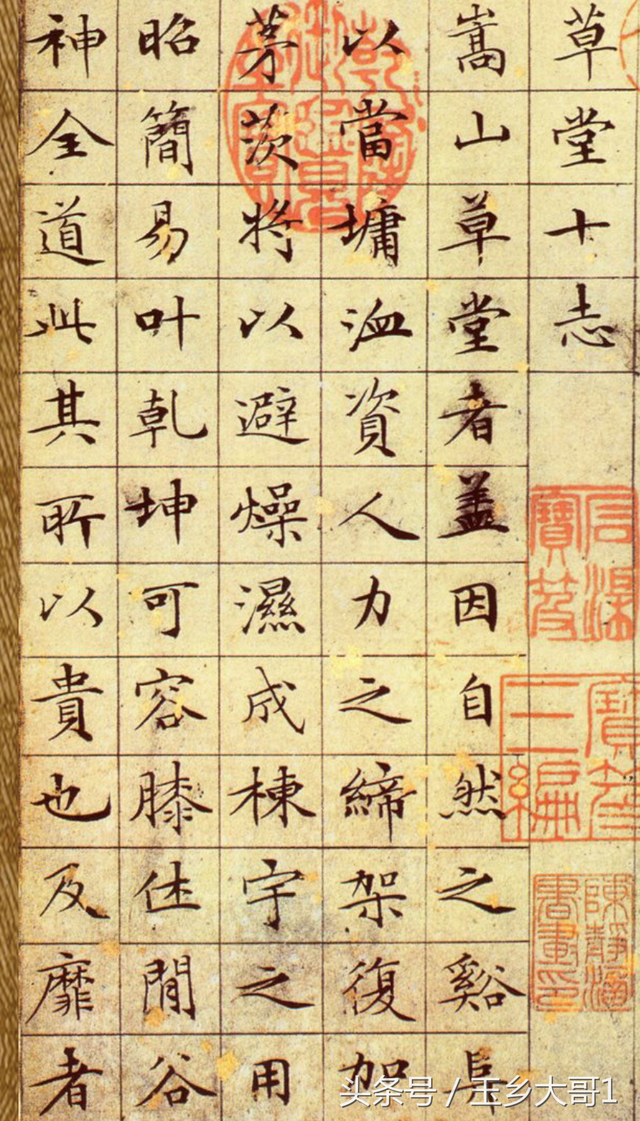 草堂十志
嵩山草堂者盖因自然之谿阜
以當墉洫資人力之締架復加
茅茨將以避燥濕成棟宇之用
昭簡易叶乾坤可容膝休閒谷
神全道此其所以貴也及靡者
石渠寶笈
寶笈三編
头条号 / 玉乡大哥1